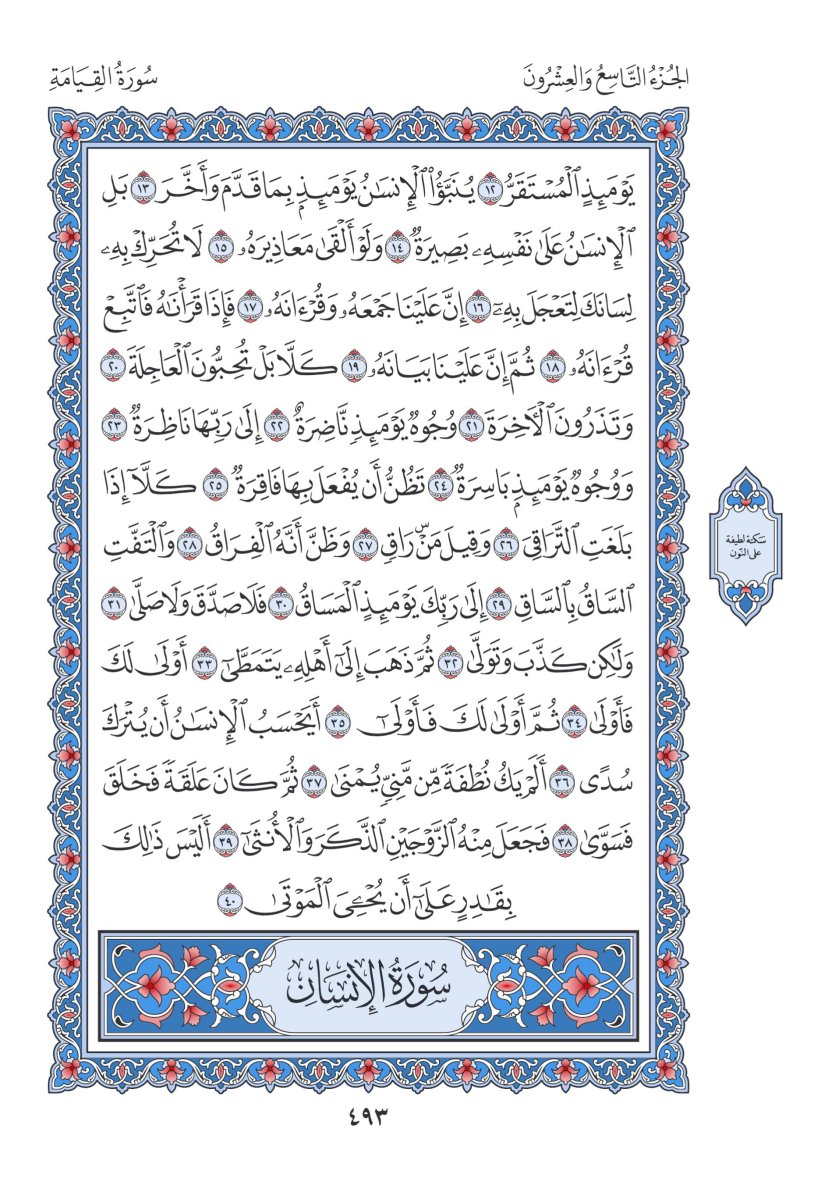 الجُزْءُ التَّاسِعُ وَالعِشْرُونَ
سُورَةُ القِيَامَةِ
يَوْمَئِذٍ ٱلْمُسْتَقَرُّ ١٢ يُنَبَّؤُاْ ٱلْإِنسَٰنُ يَوْمَئِذِۭ بِمَا قَدَّمَ وَأَخَّرَ ١٣ بَلِ
ٱلْإِنسَٰنُ عَلَىٰ نَفْسِهِۦ بَصِيرَةٌ ١٤ وَلَوْ أَلْقَىٰ مَعَاذِيرَهُۥ ١٥ لَا تُحَرِّكْ بِهِۦ
لِسَانَكَ لِتَعْجَلَ بِهِۦٓ ١٦ إِنَّ عَلَيْنَا جَمْعَهُۥ وَقُرْءَانَهُۥ ١٧ فَإِذَا قَرَأْنَٰهُ فَٱتَّبِعْ
قُرْءَانَهُۥ ١٨ ثُمَّ إِنَّ عَلَيْنَا بَيَانَهُۥ ١٩ كَلَّا بَلْ تُحِبُّونَ ٱلْعَاجِلَةَ ٢٠
وَتَذَرُونَ ٱلْأٓخِرَةَ ٢١ وُجُوهٌ يَوْمَئِذٍ نَّاضِرَةٌ ٢٢ إِلَىٰ رَبِّهَا نَاظِرَةٌ ٢٣
وَوُجُوهٌ يَوْمَئِذِۭ بَاسِرَةٌ ٢٤ تَظُنُّ أَن يُفْعَلَ بِهَا فَاقِرَةٌ ٢٥ كَلَّآ إِذَا
بَلَغَتِ ٱلتَّرَاقِيَ ٢٦ وَقِيلَ مَنْۜ رَاقٍ ٢٧ وَظَنَّ أَنَّهُ ٱلْفِرَاقُ ٢٨ وَٱلْتَفَّتِ
ٱلسَّاقُ بِٱلسَّاقِ ٢٩ إِلَىٰ رَبِّكَ يَوْمَئِذٍ ٱلْمَسَاقُ ٣٠ فَلَا صَدَّقَ وَلَا صَلَّىٰ ٣١
وَلَٰكِن كَذَّبَ وَتَوَلَّىٰ ٣٢ ثُمَّ ذَهَبَ إِلَىٰٓ أَهْلِهِۦ يَتَمَطَّىٰٓ ٣٣ أَوْلَىٰ لَكَ
فَأَوْلَىٰ ٣٤ ثُمَّ أَوْلَىٰ لَكَ فَأَوْلَىٰٓ ٣٥ أَيَحْسَبُ ٱلْإِنسَٰنُ أَن يُتْرَكَ
سُدًى ٣٦ أَلَمْ يَكُ نُطْفَةً مِّن مَّنِيٍّ يُمْنَىٰ ٣٧ ثُمَّ كَانَ عَلَقَةً فَخَلَقَ
فَسَوَّىٰ ٣٨ فَجَعَلَ مِنْهُ ٱلزَّوْجَيْنِ ٱلذَّكَرَ وَٱلْأُنثَىٰٓ ٣٩ أَلَيْسَ ذَٰلِكَ
بِقَٰدِرٍ عَلَىٰٓ أَن يُحْـِۧيَ ٱلْمَوْتَىٰ ٤٠
سُورَةُ الإِنسَانِ
سَكتة لطيفة
على النّون
٤٩٣